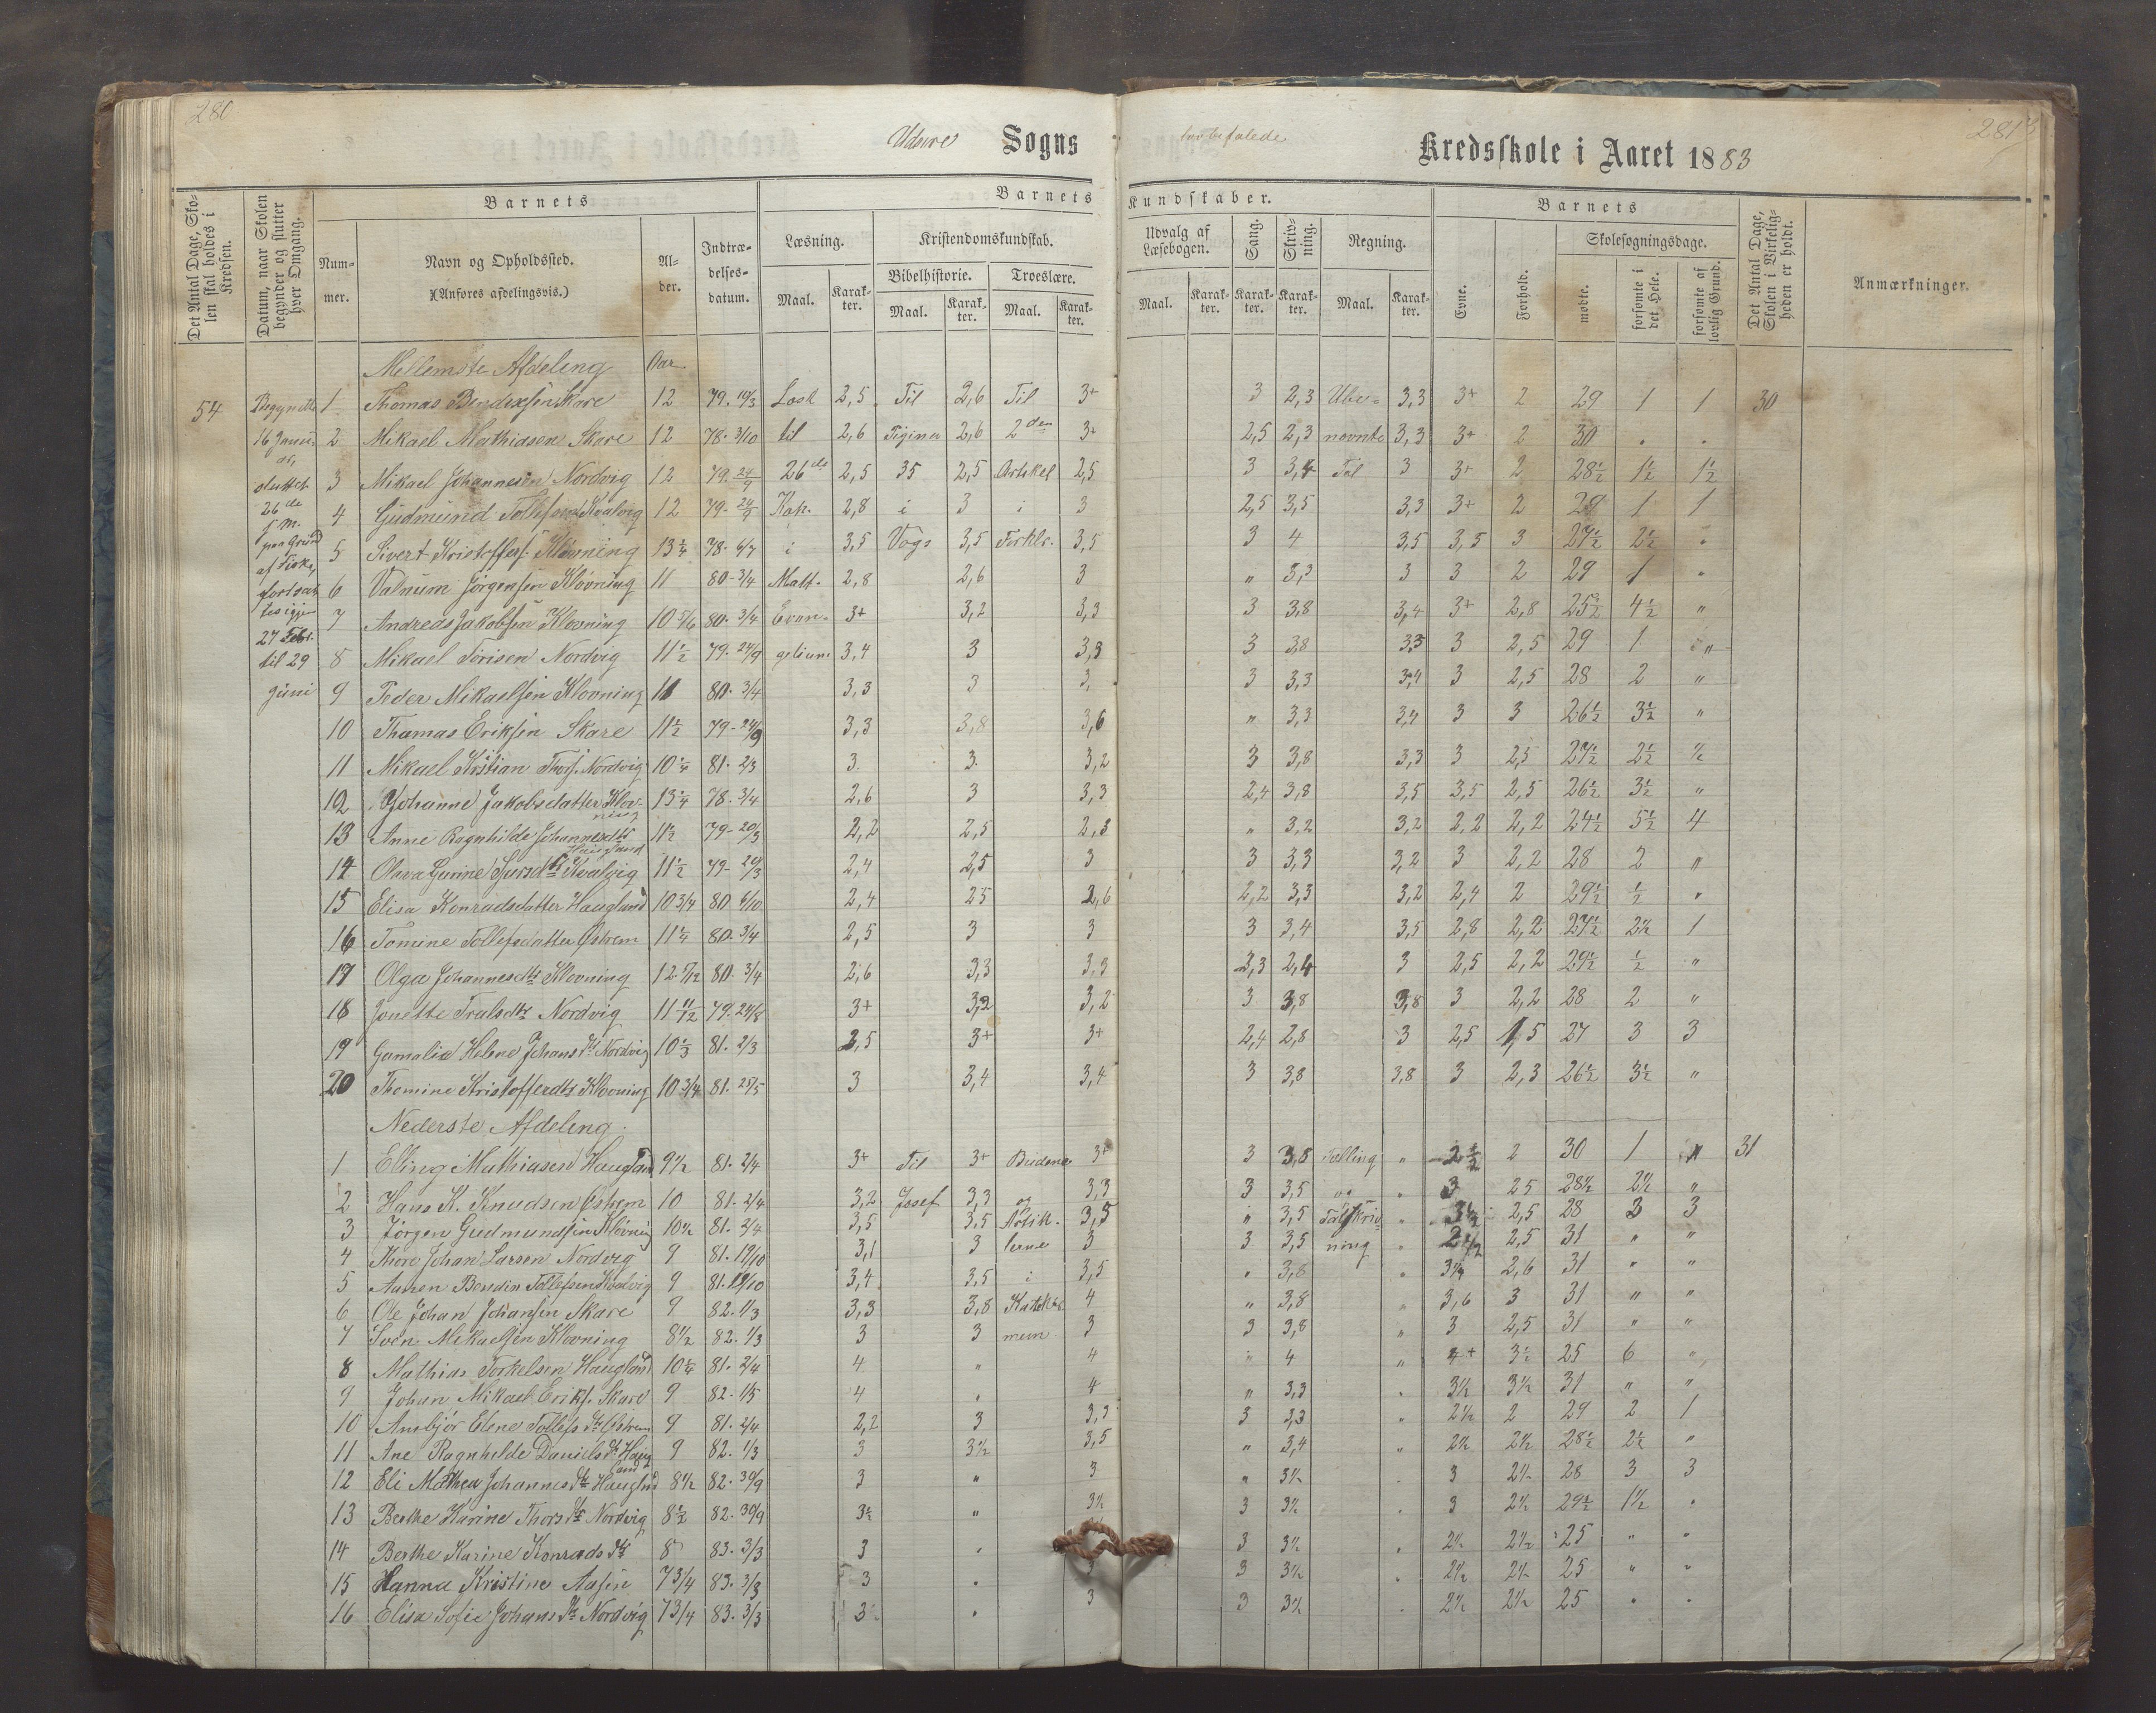 280
Sogns
Kredsskole i Aaret 1883
281
Det Antal Dage, Skolen skal holdes i Kredsen.
Datum, naar Skolen begynder og slutter hver Omgang.
Barnets
Nummer.
Navn og Opholdssted.
(Anføres afdelingsvis.)
Alder.
Indtrædelsesdatum.
Barnets Kundskaber.
Læsning.
Maal. Karakter.
Kristendomskundskab.
Bibelhistorie.
Maal. Karakter.
Troeslære.
Maal. Karakter.
Udvalg af Læsebogen.
Maal. Karakter.
Sang. Karakter.
Skrivning. Karakter.
Regning.
Maal. Karakter.
Barnets
Evne.
Forhold.
Skolesøgningsdage.
mødte.
forsømte i det Hele.
forsømte af lovlig Grund.
Det Antal Dage, Skolen i Virkeligheden er holdt.
Anmærkninger.
Mellemste Afdeling Aar.
54 Begyndte 1 Thomas Bendixsen Skare 12 79. 10/3 Læst 2,5 Til 2,6 Til 3+ 3 2,3 Ube= 3,3 3+ 2 29 1 1 30
16 Janu- 2 Mikael Mathiasen Skare 12 78. 3/10 til 2,6 Tigina 2,6 2den 3+ 2,5 2,3 nævnte 3,3 3+ 2 30 " "
ar,
sluttet 3 Mikael Johannesen Nordvig 12 79. 24/9 26de 2,5 35 2,5 Artikel 2,5 3 3,4 Tal 3 3+ 2 28½ 1½ 1½
26de
s. M. 4 Gudmund Tollefsen Kvalvig 12 79. 24/9 Kap. 2,8 i 3 i 3 2,5 3,5 3,3 3+ 2 29 1 1
paa Grund 5 Sivert Kristoffers. Kløvning 13¼ 78. 6/7 i 3,5 Vogs 3,5 Forklr. 3,5 3 4 3,5 3,5 3 27½ 2½ "
af Fiske,
fortsat- 6 Valnum Jørgensen Kløvning 11 80-3/4 Matt. 2,8 2,6 3 " 3,3 3 3 2 29 1 "
tes igjen 7 Andreas Jakobsen Kløvning 80. 3/4 Evan- 3+ 3,2 3,3 3 3,8 3,4 3+ 2,8 25½ 4½ "
27 Febr.
til 29 8 Mikael Torisen Nordvig 11½ 79. 24/9 gelium 3,4 3 3,3 3 3,8 3,5 3 2,5 29 1 "
juni 9 Peder Mikaelsen Klovning 11 80. 3/4 3,3 3 3, 3 3,3 3,4 3 2,5 28 2 "
10 Thomas Eriksen Skare 11½ 79-24/9 3,3 3,8 3,6 " 3,3 3,4 3 3 26½ 3½ "
11 Mikael Kristian Thors. Nordvig 10¼ 81. 2/3 3 3 3,2 3 3,8 3,3 3 2,5 27½ 2½ ½
12 Johanne Jakobsdatter Klov-ning 13¼ 78. 3/4 2,6 3 3,3 2,4 3,8 3,5 3,5 2,5 26½ 3½ "
13 Anne Ragnhilde Johannesdtr Haugland 11½ 79-20/3 2,2 2,5 2,3 " 3,2 3,2 2,2 2,2 24½ 5½ 4
14 Olava Gurine Sjursdtr Kvalvig 11½ 79-20/3 2,4 2,5 3 3 3,3 3,2 3 2,2 28 2 "
15 Elisa Konradsdatter Haugland 10 3/4 80 6/10 2,4 25 2,6 2,2 3,3 3,2 2,4 2 29½ ½ "
16 Tomine Tollefsdatter Østrem 11¼ 80. 3/4 2,5 3 3 3 3,4 3,5 2,8 2,2 27½ 2½ 1
17 Olga Johannesdtr Klovning 12 80. 3/4 2,6 3,3 3,3 2,3 2,4 3 2,5 2,2 29½ ½ "
18 Jonette Trulsdtr Nordvig 11 11/12 79. 24/8 3+ 3,2 3,2 3 3,8 3,8 3 2,2 28 2 "
19 Gamalia Helene Johansdtr Nordvig 10⅓ 81. 2/3 2,5 3+ 3+ 2,4 2,8 3 2,5 1,5 27 3 3
20 Tomine Kristoffersdtr Klovning 10 3/4 81. 25/5 3 3,4 3,4 3 3,8 3,8 3 2,3 26½ 3½ "
Nederste Afdeling.
1 Elling Mathiasen Haugland 9½ 81. 2/4 3+ Til 3+ Budene 3+ 3 3,8 Tælling " 2½ 2 30 1 " 31
2 Hans K. Knudsen Østrem 10 81. 2/4 3,2 Josef 3,3 og 3,3 3 3,5 og " 3 25 28½ 2½ "
3 Jørgen Gudmundsen Kløvning 10½ 81. 2/4 3,5 3,5 Artik- 3,5 " 3,5 Talskriv- " 3½ 2,5 28 3 3
4 Thore Johan Larsen Nordvig 9 81. 19/10 3,1 3 lerne 3 3 3,5 ning " 2½ 2,5 31 " "
5 Bendin Tollefsen Kvalvig 9 81. 19/10 3,4 3,5 i 3,5 " 3,8 " 3¼ 2,6 31 " "
6 Ole Johan Johansen Skare 9 82. 1/3 3,3 3,8 Katekis- 4 " 3,8 " 3,6 3 31 " "
7 Sven Mikaelsen Klovning 8½ 82. 1/3 3 3 mem 3 3 3,8 " 3 2,5 31 " "
8 Mathias Torkelsen Haugland 10¼ 81. 2/4 4 " 4 " 4 " 4+ 3½ 25 6 "
9 Johan Mikael Eriks. Skare 9 82. 1/5 4 " 4 " 3,3 " 3½ 3½ 31 " "
10 Ambjør Elene Tollefs dtr Østrem 9 81. 2/4 2,2 3 3,3 3 3,3 " 2½ 2 29 2 1
11 Ane Ragnhilde Daniels dtr Haugland 9 82. 1/3 3 3½ 3,5 " 3,4 " 2½ 2½ 28½ 2½ "
12 Eli Mathea Johannes dtr Haugland 8½ 82. 30/9 3 " 3 " 3½ 3 2½ 28 3 3
13 Berthe Karine Thors dtr Nordvig 8½ 82. 30/9 3½ " 3½ 3 3½ " 3 2½ 29½ 1½ "
14 Berthe Karine Konrads dtr 8 83. 3/3 3 " 3 3½ " 2½ 2½ 25 " "
15 Hanna Kristine Aasen 7 3/4 83. 3/3 3 " 3 3 3½ " 2½ 2½ 25 " "
16 Elisa Sofie Johans dtr Nordvig 7 3/4 83. 3/3 3½ " 3 3 3½ " 2½ 2½ 25 " "